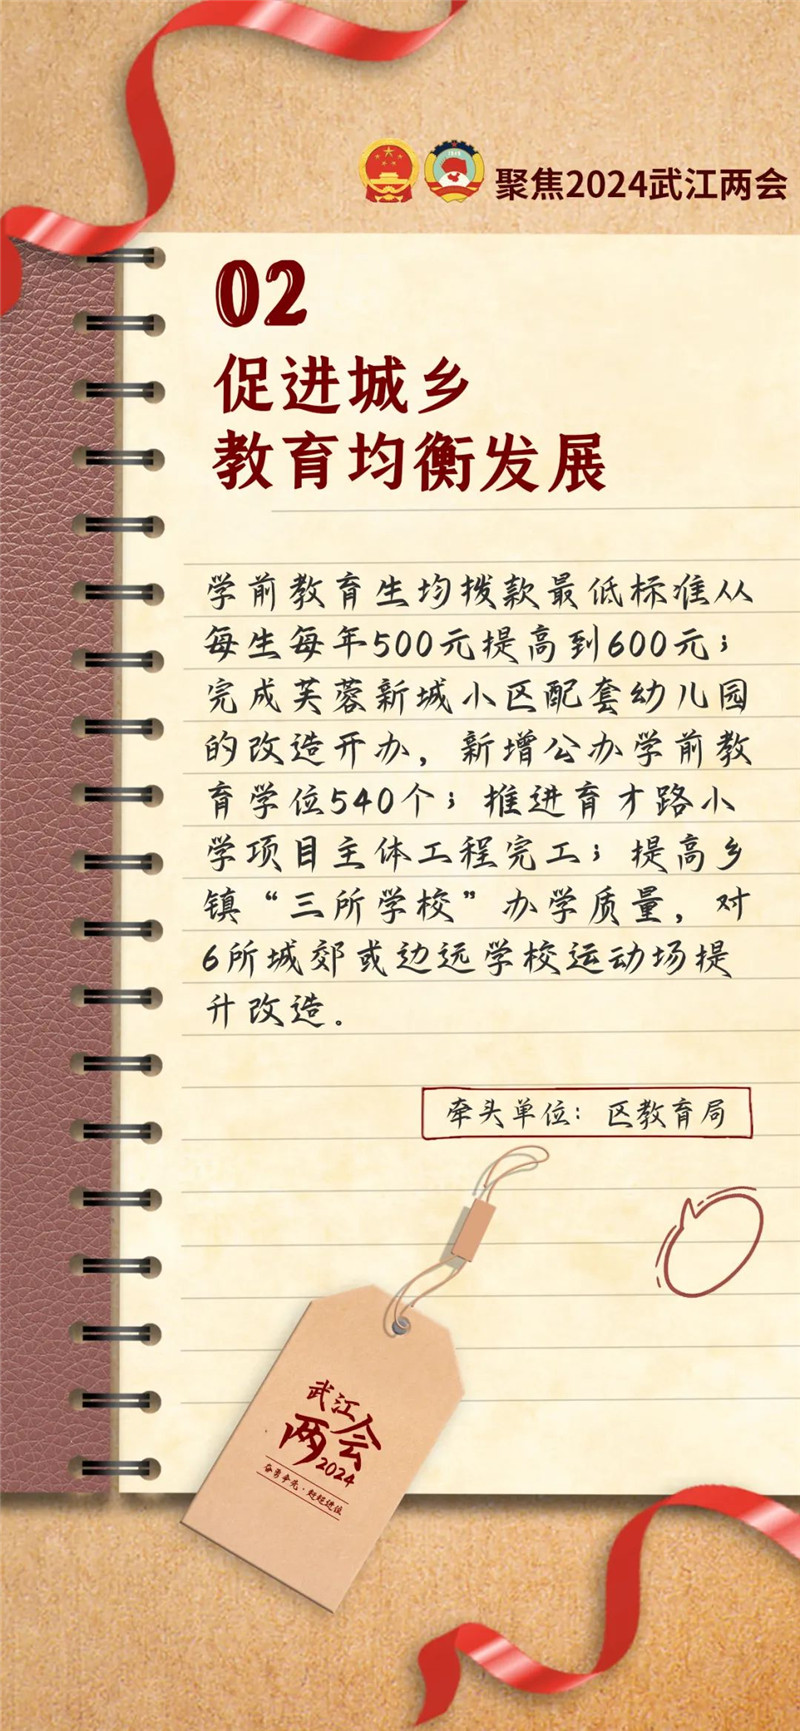 聚焦2024武江两会
02
促进城乡
教育均衡发展
学前教育生均拨款最低标准从
每生每年500元提高到600元；
完成芙蓉新城小区配套幼儿园
的改造开办，新增公办学前教
育学位540个；推进育才路小
学项目主体工程完工；提高乡
镇“三所学校”办学质量，对
6所城郊或边远学校运动场提
升改造。
牵头单位：区教育局
武江
两会
2024
奋勇争先·赶超进位